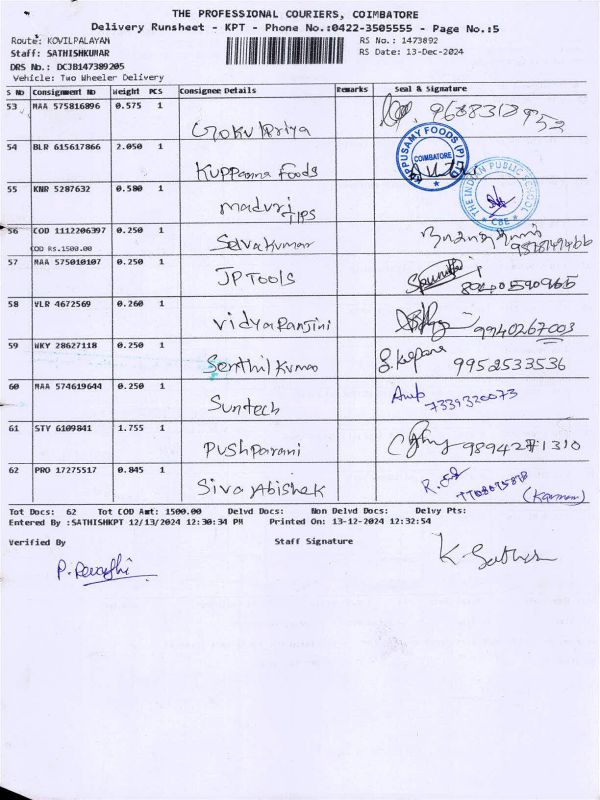 THE PROFESSIONAL COURIERS, COIMBATORE
Delivery Runsheet - KPT - Phone No.:0422-3505555 - Page No.:5
Route: KOVILPALAYAN
RS No.: 1473892
Staff: SATHISHKUMAR
RS Date: 13-Dec-2024
DRS No.: DCJB147389205
Vehicle: Two Wheeler Delivery
S No Consignment No Weight PCS Consignee Details Remarks Seal & Signature
53 MAA 575816896 0.575 1 Gokul Priya
54 BLR 615617866 2.050 1 Kuppanna Foods KUPPUSAMY FOODS (P) LTD COIMBATORE
55 KNR 5287632 0.580 1 Madvri TIPS THE INDIAN PUBLIC SCHOOL CBE
56 COD 1112206397 0.250 1 Selvakumar
COD Rs.1500.00
57 MAA 575010107 0.250 1 JP Tools
58 VLR 4672569 0.260 1 Vidya Ranjini 9940267003
59 WKY 28627118 0.250 1 Senthil Kumar 9952533536
60 MAA 574619644 0.250 1 Suntech 7339320073
61 STY 6109841 1.755 1 Pushparani
62 PRO 17275517 0.845 1 Siva Abishek
Tot Docs: 62 Tot COD Amt: 1500.00 Delvd Docs: Non Delvd Docs: Delvy Pts:
Entered By :SATHISHKPT 12/13/2024 12:30:34 PM Printed On: 13-12-2024 12:32:54
Verified By Staff Signature